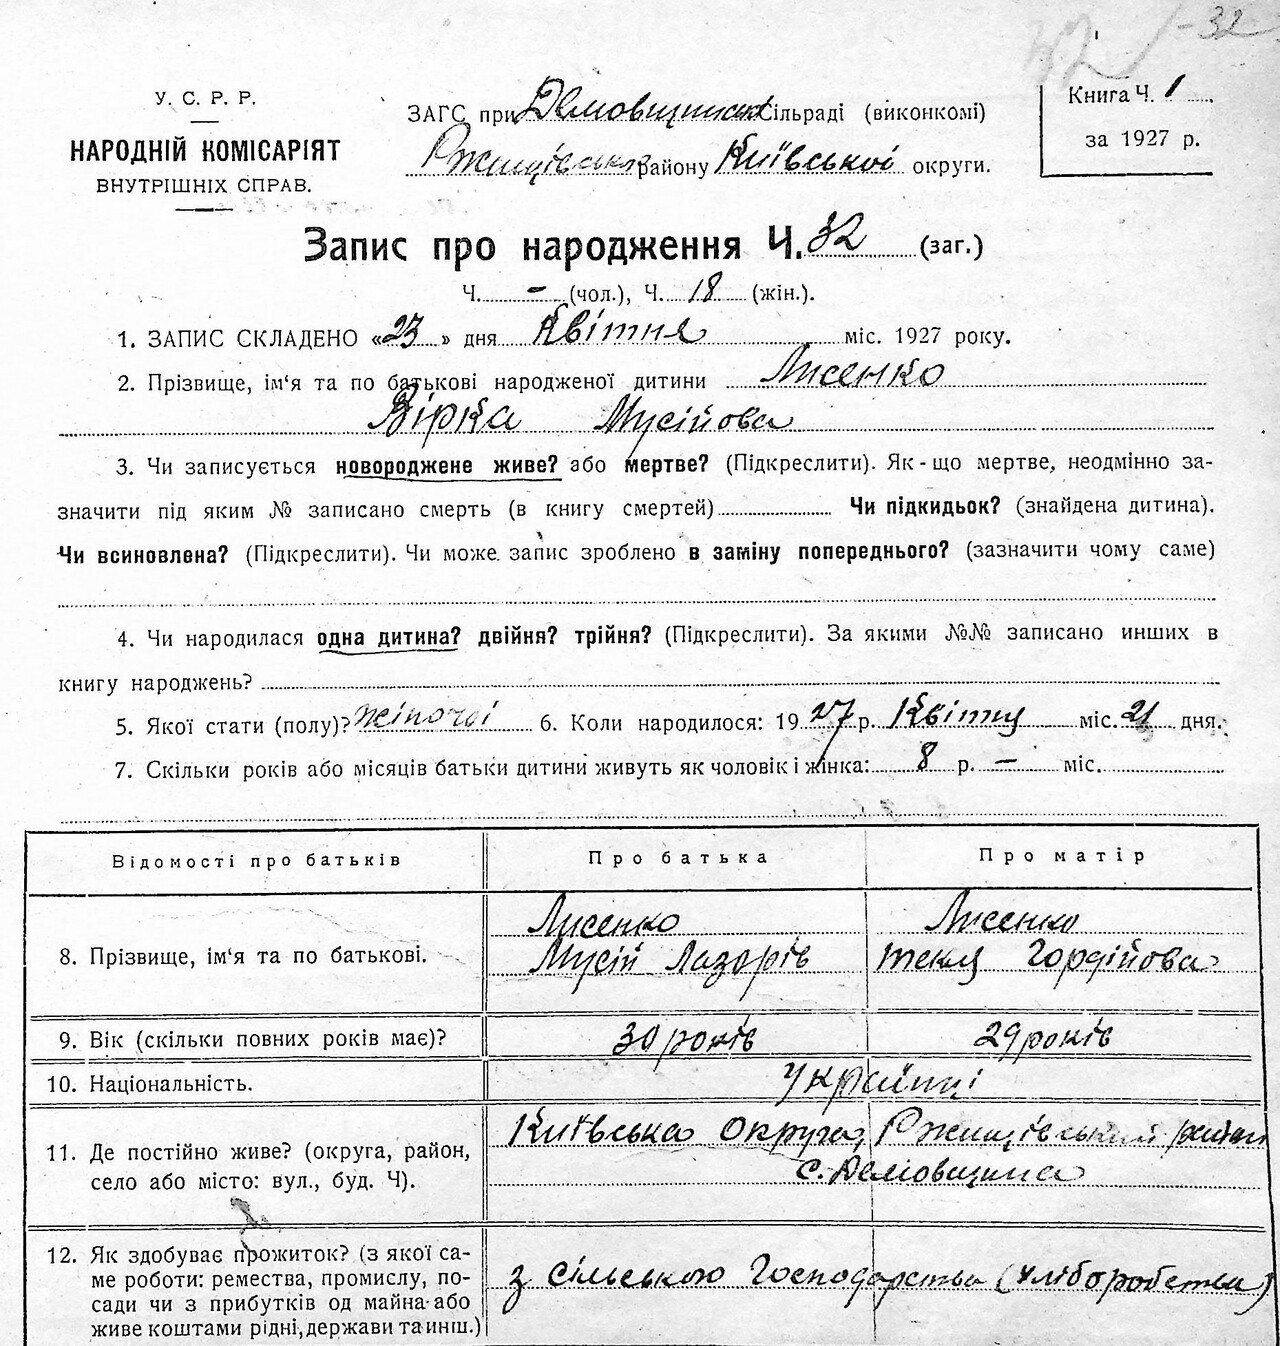 32 - 32
У. С. Р. Р.
НАРОДНІЙ КОМІСАРІЯТ
ВНУТРІШНІХ СПРАВ.
ЗАГС при Демовщинській Сільраді (виконкомі)
Ржищівськ району Київської округи.
Книга Ч. 1
за 1927 р.
Запис про народження Ч. 32 (заг.)
Ч. - (чол.), Ч. 18 (жін.).
1. ЗАПИС СКЛАДЕНО «23» дня Квітня міс. 1927 року.
2. Прізвище, ім'я та по батькові народженої дитини Лисенко
Вірка Мусійова
3. Чи записується новороджене живе? або мертве? (Підкреслити). Як-що мертве, неодмінно за-
значити під яким № записано смерть (в книгу смертей) Чи підкидьок? (знайдена дитина).
Чи всиновлена? (Підкреслити). Чи може запис зроблено в заміну попереднього? (зазначити чому саме)
4. Чи народилася одна дитина? двійня? трійня? (Підкреслити). За якими №№ записано инших в
книгу народжень?
5. Якої стати (полу)? жіночої 6. Коли народилося: 1927 р. Квітня міс. 21 дня.
7. Скільки років або місяців батьки дитини живуть як чоловік і жінка: 8 р. - міс.
Відомості про батьків Про батька Про матір
8. Прізвище, ім'я та по батькові. Лисенко Мусій Лазорів Лисенко Текля Гордійова
9. Вік (скільки повних років має)? 30 років 29 років
10. Національність. Українці
11. Де постійно живе? (округа, район, Київська округа, Ржищівський район
село або місто: вул., буд. Ч). с. Демовщина
12. Як здобуває прожиток? (з якої са-
ме роботи: ремества, промислу, по- з сільського господарства (хліборобства)
сади чи з прибутків од майна або
живе коштами рідні, держави та инш.)